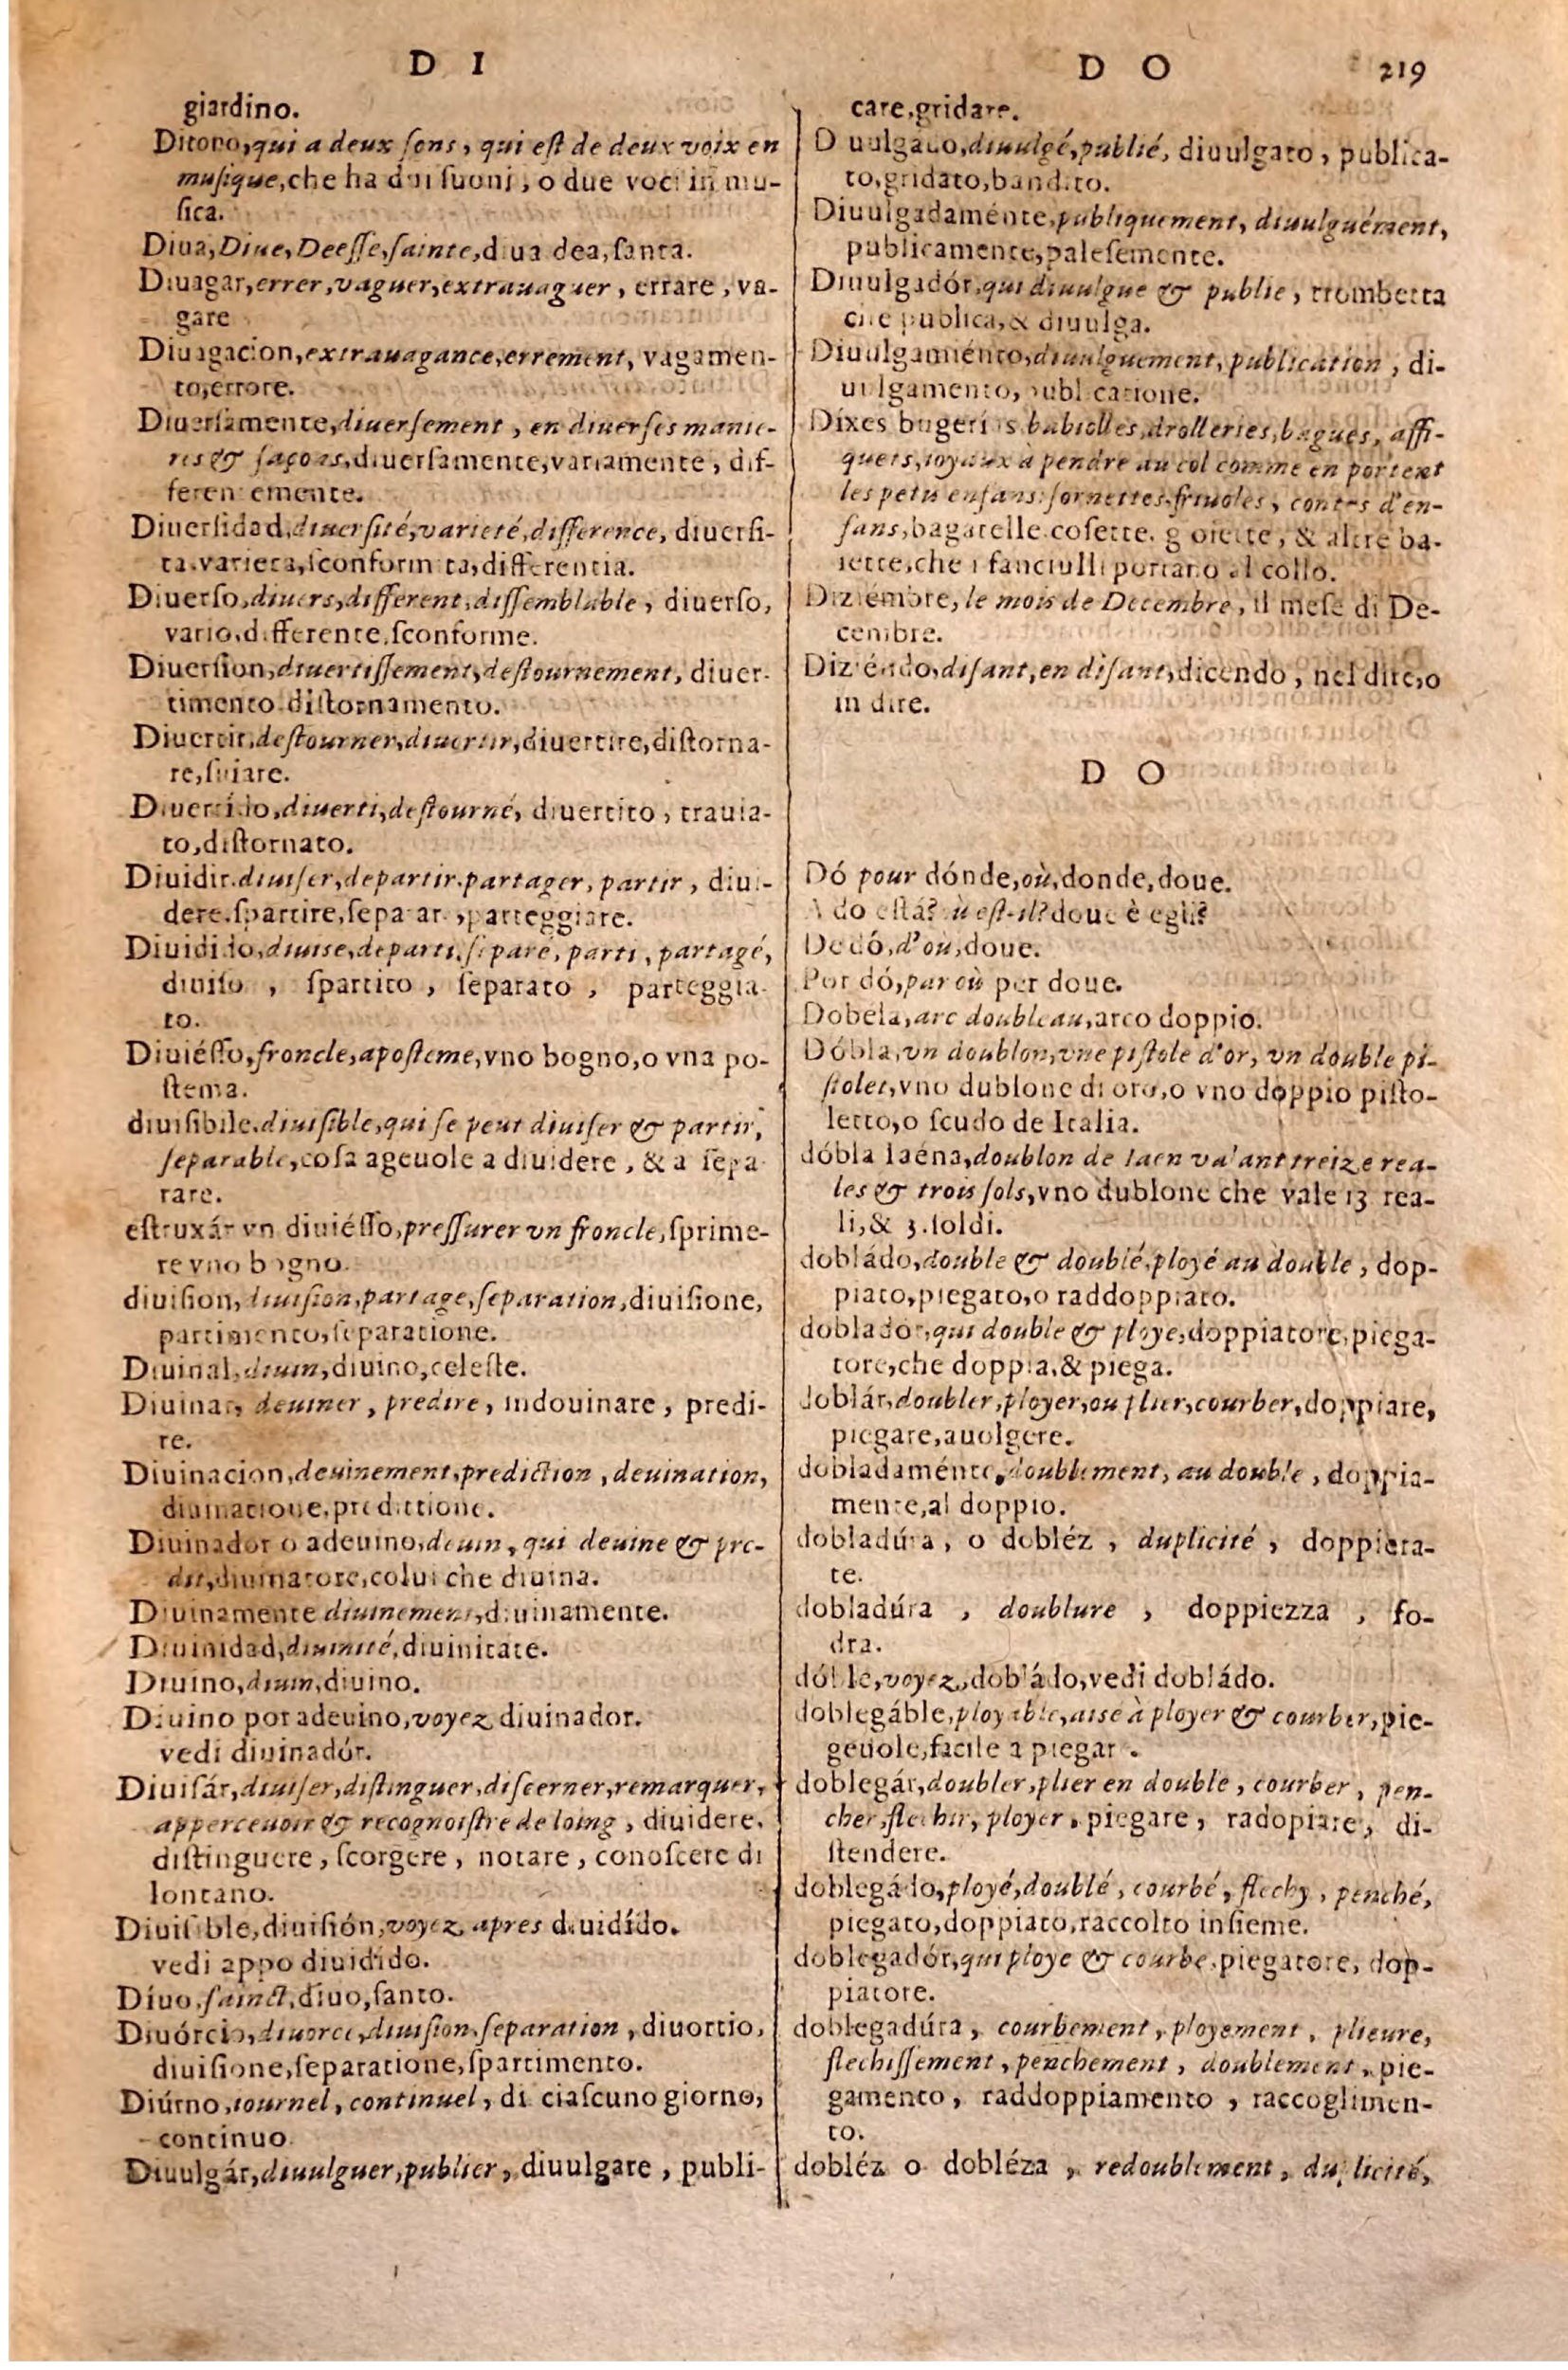 D I
giardino.
Ditono, qui a deux sons, qui est de deux voix en
musique, che ha dui suoni, o due voci in mu-
sica.
Diua, Diue, Deesse, sainte, diua dea, santa.
Diuagar, errer, vaguer, extrauaguer, errare, va-
gare
Diuagacion, extrauagance, errement, vagamen-
to, errore.
Diuersamente, diuersement, en diuerses manie-
res & façons, diuersamente, variamente, dif-
ferentemente.
Diuersidad, diuersité, varieté, difference, diuersi-
ta. varieta, sconformita, differentia.
Diuerso, diuers, different, dissemblable, diuerso,
vario, differente, sconforme.
Diuersion, diuertissement, destournement, diuer-
timento distornamento.
Diuertir, destourner, diuertir, diuertire, distorna-
re, suiare.
Diuertido, diuerti, destourné, diuertito, trauia-
to, distornato.
Diuidir. diuiser, departir. partager, partir, diui-
dere. spartire, separar, parteggiare.
Diuidido, diuise, departi. separé, parti, partagé,
diuiso, spartito, separato, parteggia-
to.
Diuiésso, froncle, aposteme, vno bogno, o vna po-
stema.
diuisibile. diuisible, qui se peut diuiser & partir,
separable, cosa ageuole a diuidere, & a sepa-
rare.
estruxár vn diuiésso, pressurer vn froncle, sprime-
re vno bogno.
diuision, diuision, partage, separation, diuisione,
partimento, separatione.
Diuinal, diuin, diuino, celeste.
Diuinar, deuiner, predire, indouinare, predi-
re.
Diuinacion, deuinement, prediction, deuination,
diuinatione, predittione.
Diuinador o adeuino, deuin, qui deuine & pre-
dit, diuinatore, colui che diuina.
Diuinamente diuinement, diuinamente.
Diuinidad, diuinité, diuinitate.
Diuino, diuin, diuino.
Diuino por adeuino, voyez diuinador.
vedi diuinadór.
Diuisár, diuiser, distinguer, discerner, remarquer,
apperceuoir & recognoistre de loing, diuidere,
distinguere, scorgere, notare, conoscere di
lontano.
Diuisible, diuisión, voyez apres diuidído.
vedi appo diuidído.
Díuo, sainct, diuo, santo.
Diuórcio, diuorce, diuision. separation, diuortio,
diuisione, separatione, spartimento.
Diúrno, iournel, continuel, di ciascuno giorno,
continuo
Diuulgár, diuulguer, publier, diuulgare, publi-
D O 219
care, gridare.
Diuulgado, diuulgé, publié, diuulgato, publica-
to, gridato, bandito.
Diuulgadaménte, publiquement, diuulguément,
publicamente, palesemente.
Diuulgadór, qui diuulgue & publie, trombetta
che publica, & diuulga.
Diuulgamiénto, diuulguement, publication, di-
uulgamento, publicatione.
Díxes bugerias babiolles, drolleries, bagues, affi-
quets, ioyaux à pendre au col comme en portent
les petis enfans: sornettes, friuoles, contes d'en-
fans, bagatelle. cosette. gioiette, & altre ba-
iette, che i fanciulli portano al collo.
Diziémbre, le mois de Decembre, il mese di De-
cembre.
Diziéndo, disant, en disant, dicendo, nel dire, o
in dire.
D O
Dó pour dónde, où, donde, doue.
A do está? où est-il? doue è egli?
De dó, d'où, doue.
Por dó, par où per doue.
Dobela, arc doubleau, arco doppio.
Dóbla, vn doublon, vne pistole d'or, vn double pi-
stolet, vno dublone di oro, o vno doppio pisto-
letto, o scudo de Italia.
dóbla Iaéna, doublon de Iaen valant treize rea-
les & trois sols, vno dublone che vale 13 rea-
li, & 3. soldi.
dobládo, double & doublé, ployé au double, dop-
piato, piegato, o raddoppiato.
doblador, qui double & ploye, doppiatore, piega-
tore, che doppia, & piega.
doblár, doubler, ployer, ou plier, courber, doppiare,
piegare, auolgere.
dobladaménte, doublement, au double, doppia-
mente, al doppio.
dobladúra, o dobléz, duplicité, doppieta-
te.
dobladúra, doublure, doppiezza, fo-
dra.
dóble, voyez, dobládo, vedi dobládo.
doblegáble, ployable, aise à ployer & courber, pie-
geuole, facile a piegar.
doblegár, doubler, plier en double, courber, pen-
cher, flechir, ployer, piegare, radopiare, di-
stendere.
doblegádo, ployé, doublé, courbé, flechy, penché,
piegato, doppiato, raccolto insieme.
doblegadór, qui ploye & courbe. piegatore, dop-
piatore.
doblegadúra, courbement, ployement, plieure,
flechissement, penchement, doublement, pie-
gamento, raddoppiamento, raccoglimen-
to.
dobléz o dobléza, redoublement, duplicité,